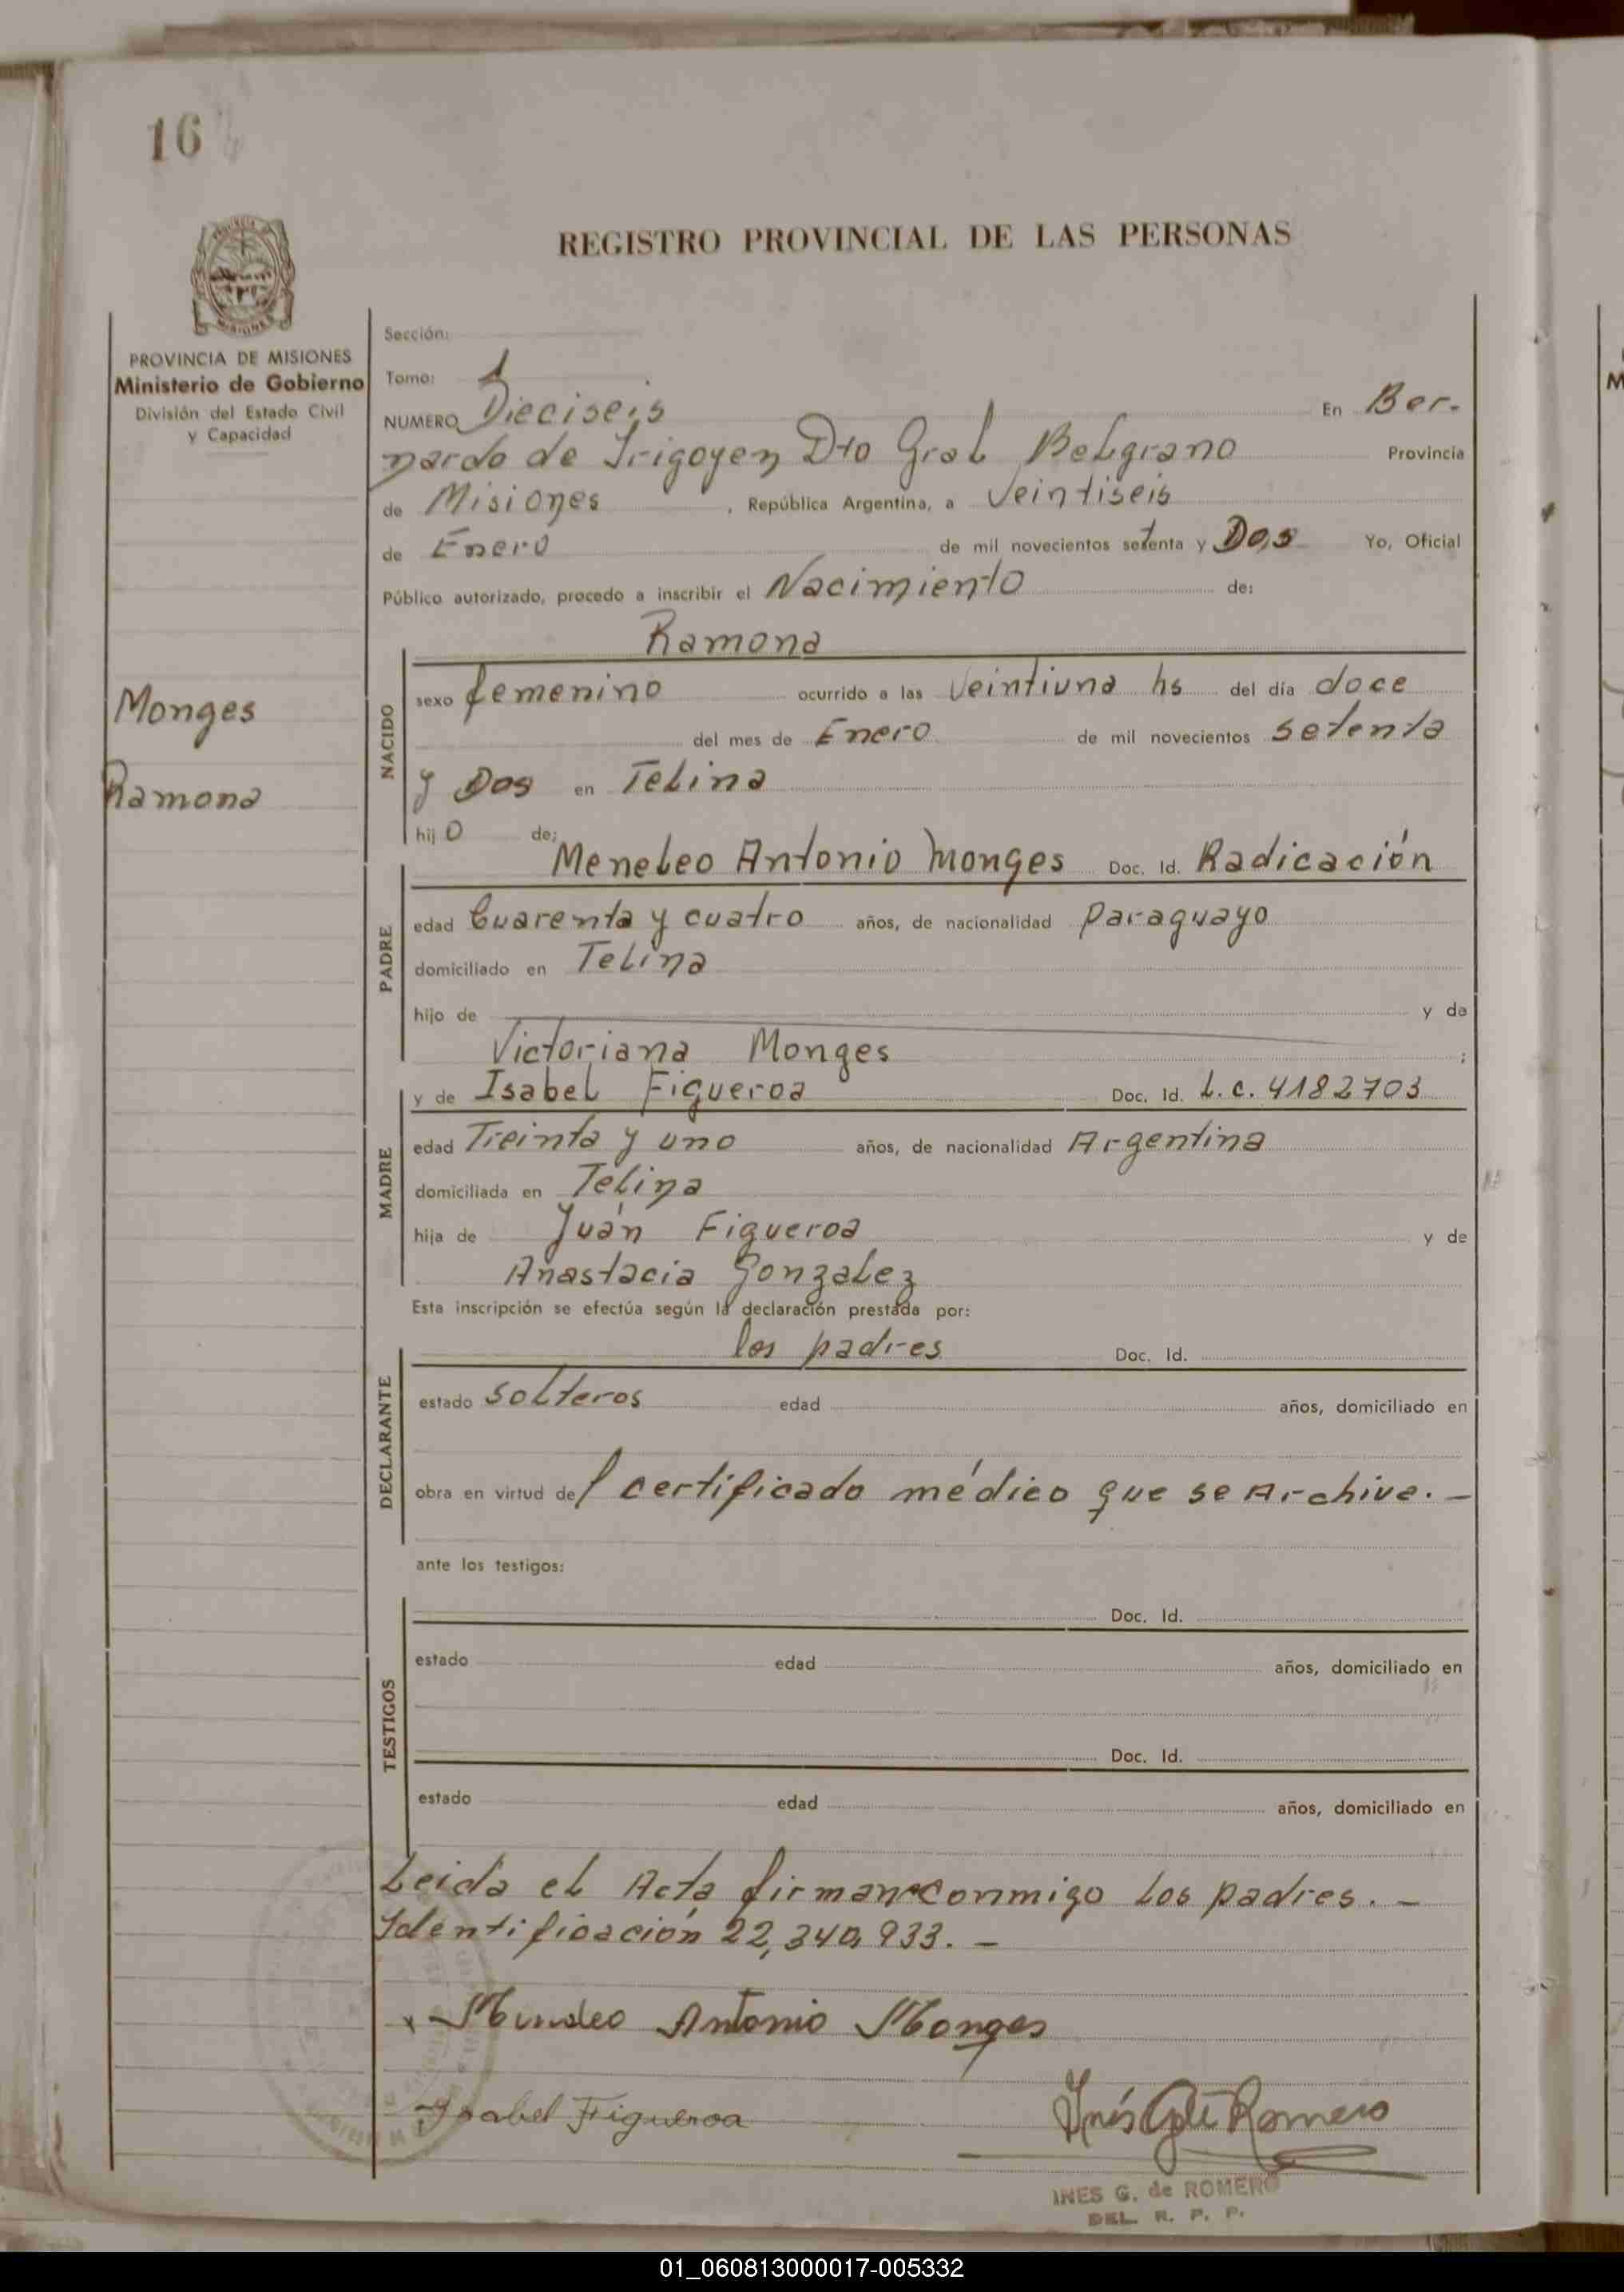 16
REGISTRO PROVINCIAL DE LAS PERSONAS
PROVINCIA DE MISIONES
Ministerio de Gobierno
División del Estado Civil
y Capacidad
Monges
Ramona
Sección:
Tomo: 1
NUMERO Dieciseis En Ber-
nardo de Irigoyen Dto Gral Belgrano Provincia
de Misiones, República Argentina, a Veintiseis
de Enero de mil novecientos setenta y Dos Yo, Oficial
Público autorizado, procedo a inscribir el Nacimiento de:
Ramona
NACIDO
sexo femenino ocurrido a las Veintiuna hs del día doce
del mes de Enero de mil novecientos setenta
y Dos en Telina
hijo de:
PADRE
Meneleo Antonio Monges Doc. Id. Radicación
edad Cuarenta y cuatro años, de nacionalidad Paraguayo
domiciliado en Telina
hijo de y de
Victoriana Monges ;
MADRE
y de Isabel Figueroa Doc. Id. L.C. 4182703
edad Treinta y uno años, de nacionalidad Argentina
domiciliada en Telina
hija de Juán Figueroa y de
Anastacia Gonzalez
Esta inscripción se efectúa según la declaración prestada por:
DECLARANTE
los padres Doc. Id.
estado solteros edad años, domiciliado en
obra en virtud del certificado médico que se Archiva.-
ante los testigos:
TESTIGOS
Doc. Id.
estado edad años, domiciliado en
Doc. Id.
estado edad años, domiciliado en
Leida el Acta firman conmigo los padres.-
Identificación 22,340,933.-
Antonio Monges
Isabel Figueroa
Inés G de Romero
INES G. de ROMERO
DEL. R. P. P.
01_060813000017-005332